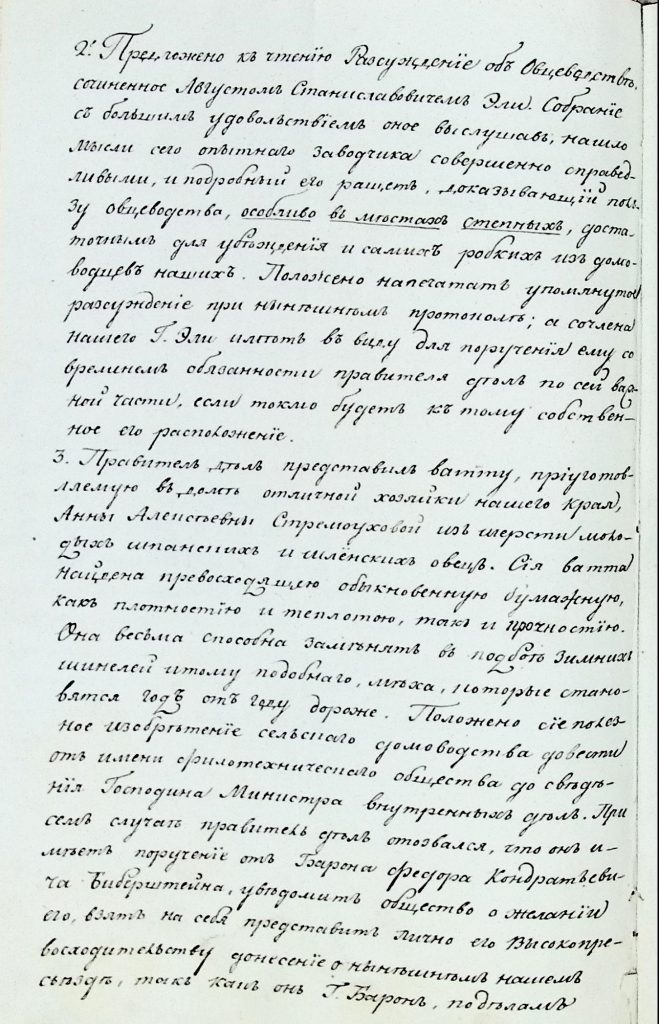 2. Предложено къ чтенію Разсужденіе объ Овцеводствѣ,
сочиненное Августомъ Станиславовичемъ Эли. Собраніе
съ большимъ удовольствіемъ оное выслушавъ, нашло
мысли сего опытнаго заводчика совершенно справед-
ливыми, и подробный его ращетъ, доказывающій поль-
зу овцеводства, особливо въ мѣстахъ степныхъ, доста-
точнымъ для убѣжденія и самихъ робкихъ изъ домо-
водцевъ нашихъ. Положено напечатать упомянутое
разсужденіе при нынѣшнемъ протоколѣ; а сочлена
нашего Г. Эли имѣть въ виду для порученія ему со
времѣнемъ обязанности правителя дѣлъ по сей важ-
ной части, если токмо будетъ къ тому собствен-
ное его расположеніе.
3. Правитель дѣлъ представилъ ватту, пріуготов-
ляемую въ домѣ отличной хозяйки нашего края,
Анны Алексѣевны Стремоуховой изъ шерсти моло-
дыхъ шпанскихъ и шлёнскихъ овецъ. Сія ватта
найдена превосходящею обыкновенную бумажную,
какъ плотностію и теплотою, такъ и прочностію.
Она весьма способна замѣнять въ подботѣ зимнихъ
шинелей и тому подобнаго, мѣха, которые стано-
вятся годъ отъ году дороже. Положено сіе полез-
ное изобрѣтеніе сельскаго домоводства довести
отъ имени Филотехническаго общества до свѣдѣ-
нія Господина Министра внутреннихъ дѣлъ. При
семъ случаѣ правитель дѣлъ отозвался, что онъ и-
мѣетъ порученіе отъ Барона Федора Кондратьеви-
ча Биберштейна, увѣдомить общество о желаніи
его, взять на себя представить лично его Высокопре-
восходительству донесеніе о нынѣшнемъ нашемъ
съѣздѣ, такъ какъ онъ Г. Баронъ, по дѣламъ